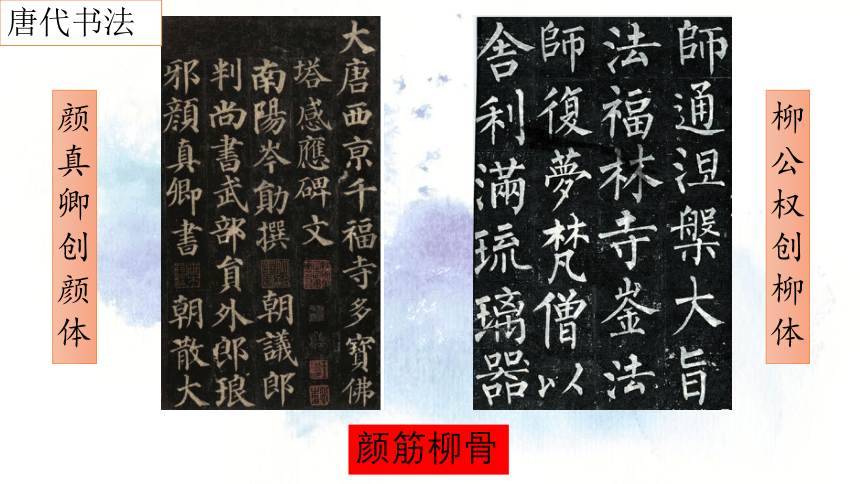 唐代书法
颜真卿创颜体
大唐西京千福寺多寶佛
塔感應碑文
南陽岑勛撰 朝議郎
判尚書武部員外郎琅
邪顏真卿書 朝散大
師通涅槃大旨
法福林寺崟法
師復夢梵僧以
舎利滿琉璃器
柳公权创柳体
颜筋柳骨